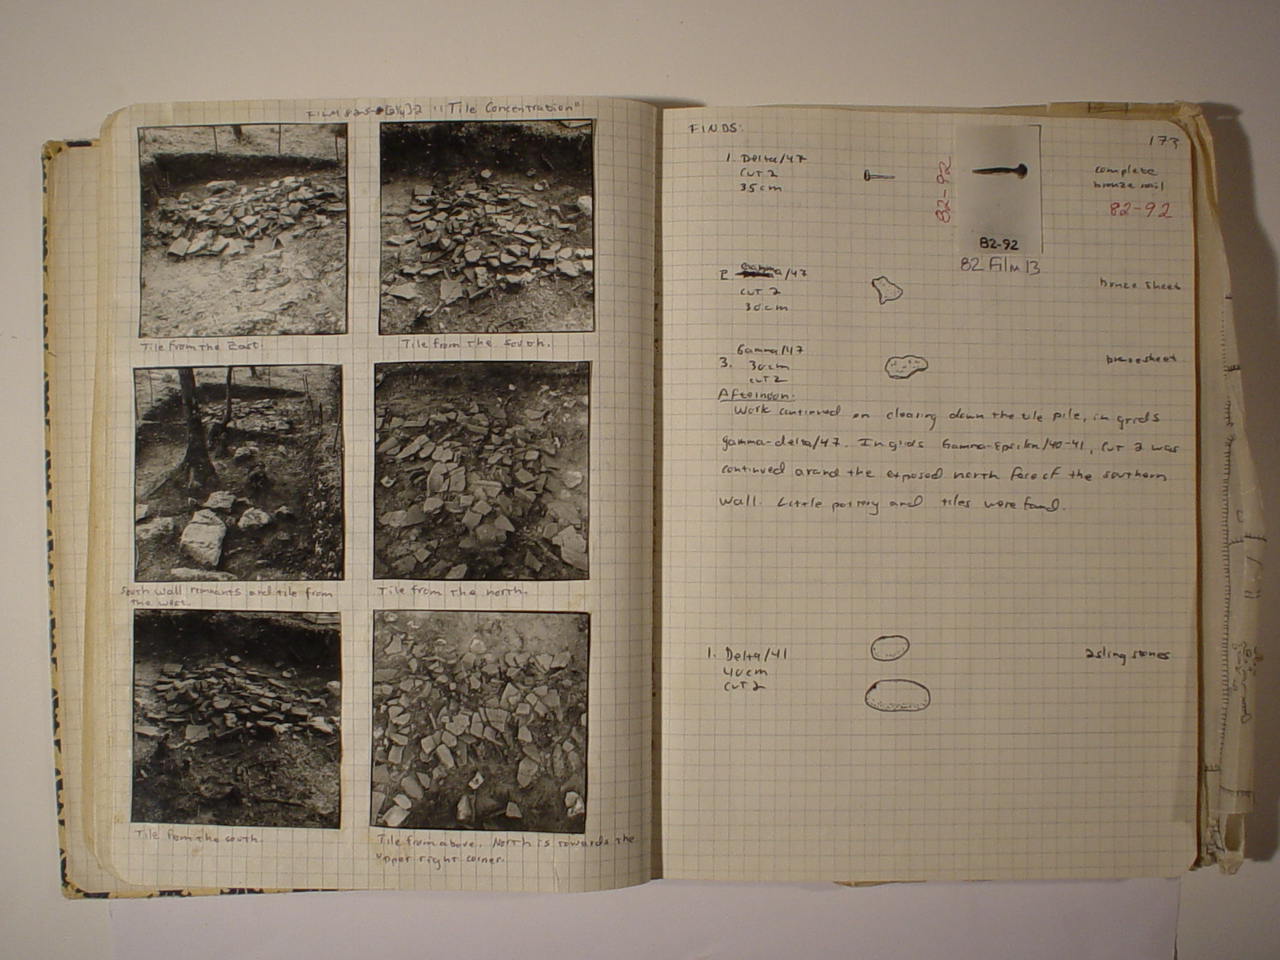 "Tile Concentration"
Tile from the East.
Tile from the South.
South Wall remnants and tile from
the west.
Tile from the north.
Tile from the south.
Tile from above. North is towards the
upper right corner.
173
FINDS:
1. Delta/47
CUT 2
35cm
82-92
82-92
82 Film 13
complete
bronze nail
82-92
2. Gamma/47
CUT 2
30cm
bronze sheet
Gamma/47
3. 30cm
CUT 2
bronze sheet
Afternoon:
Work continued on clearing down the tile pile, in grids
gamma-delta/47. In grids Gamma-Epsilon/40-41, cut 2 was
continued around the exposed north face of the southern
wall. Little pottery and tiles were found.
1. Delta/41
40cm
CUT 2
2 sling stones